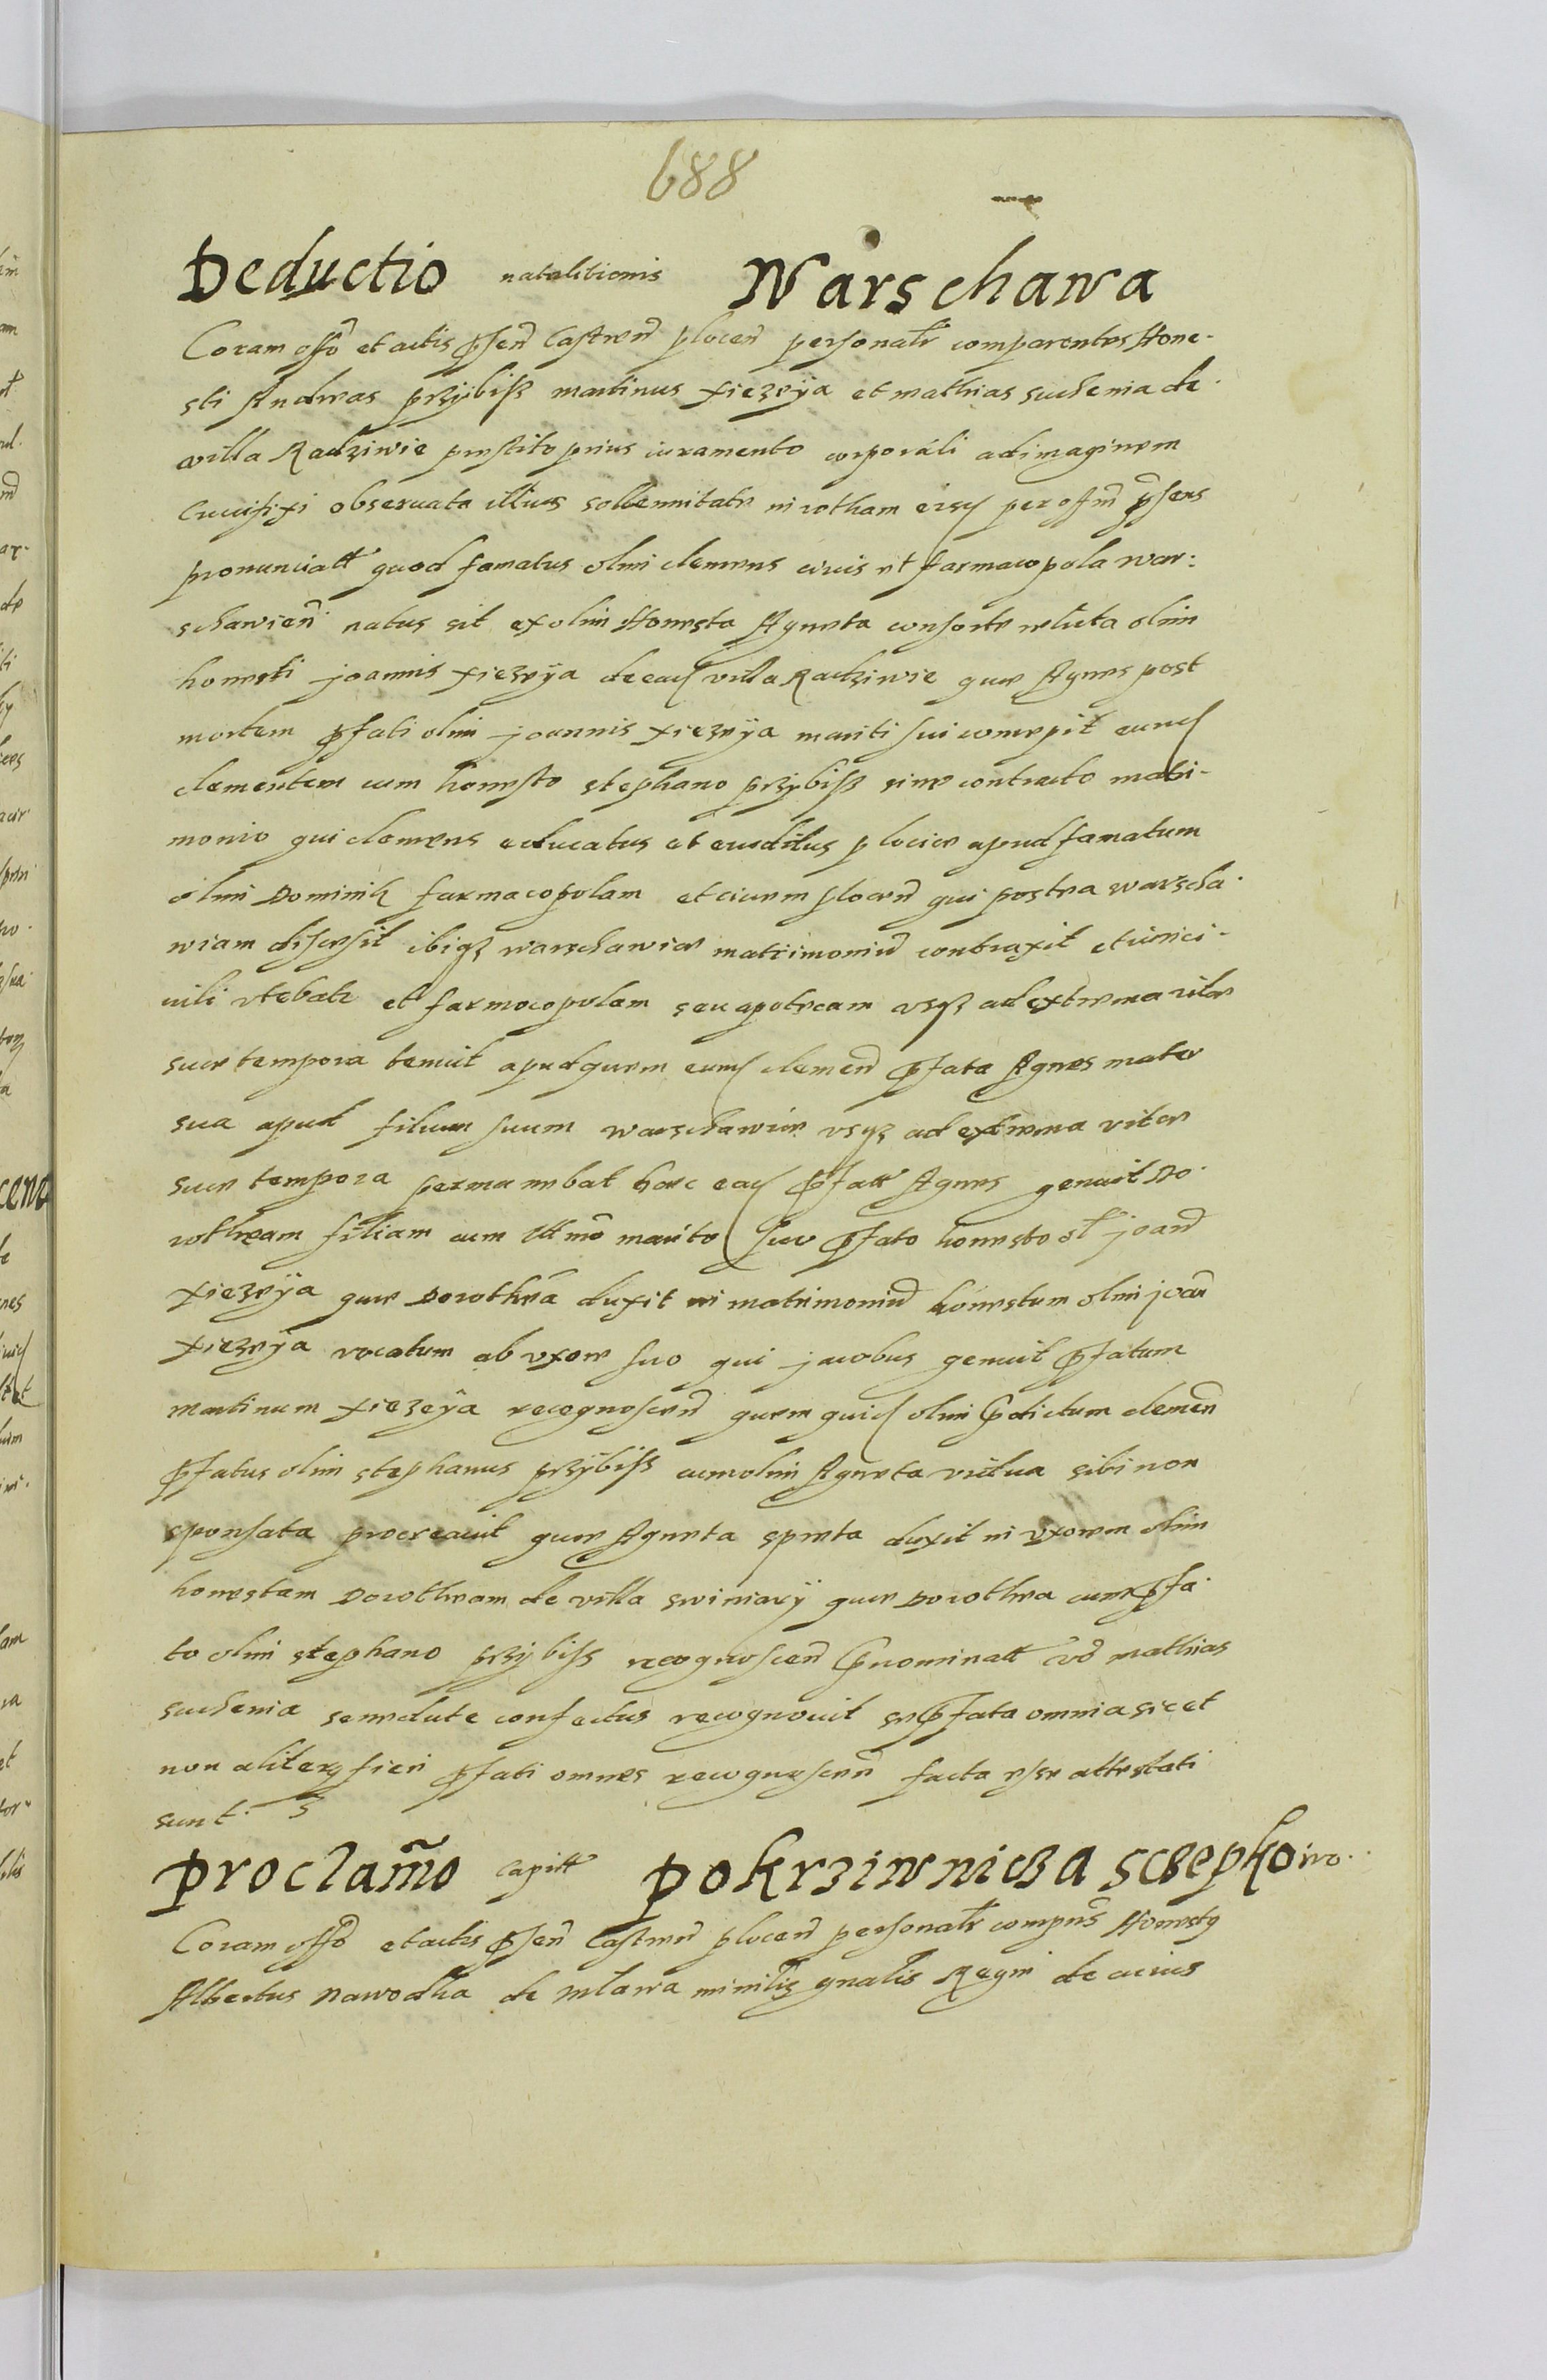 688
Deductio natalitionis Warschawa
Coram offō et actis p̄sen̄ Castren̄ plocen̄ personalr̄ comparentes Hone-
sti Andreas przÿbiss martinus xiezeÿa et mathias suchenia de
villa Radziwie prestito prius iuramento corporali ad imaginem
Crucifixi observata illius sollennitate in rotham eisd per offm̄ p̄sens
pronunciatt quod famatus olim clemens civis et farmacopola war:
schawien̄ natus sit ex olim Honesta Agneta consorte relicta olim
honesti joannis xiezeÿa de ead villa Radziwie quae Agnes post
mortem p̄fati olim joannis xiezeÿa mariti sui concepit eund
clementem cum honesto stephano przybiss sine contracto matri-
monio qui clemens educatus et eruditus plociae apud famatum
olim Dominik farmacopolam et civem plocen̄ qui postea warscha
wiam discessit ibiqz warschawiae matrimoniū contraxit et iure ci-
vili vtebatr et farmocopolam seu apotecam vsqz ad extrema vitae
suae tempora tenuit apud quem eund clemen̄ p̄fata Agnes mater
sua apud filium suum warschawiae vsqz ad extrema vitae
suae tempora permanebat haec ead p̄fatt Agnes genuit Do
rotheam filiam cum lttmō marito suo p̄fato honesto ol joan̄
xiezeÿa quae Dorothea duxit in matrimoniū honestum olim joan̄
xiezeÿa vocatum ab vxore suo qui jacobus genuit p̄fatum
martinum xiezeÿa recognoscen̄ quem quid olim p̄dictum clemen̄
p̄fatus olim stephanus przÿbiss cum olim Agneta vidua sibi non
sponsata procreavit quae Agneta spreta duxit in vxorem olim
honestam Dorotheam de villa swiniarÿ quae Dorothea cum p̄fa
to olim stephano przybiss recognoscen̄ p̄nominatt vō mathias
suchenia senectute confectus recognovit se p̄fata omnia sic et
non aliter fieri p̄fati omnes recognoscen̄ facta esse attestati
sunt.
Proclam̄o Capitt Pokrziwnicza sczepkowo.
Coram offō et actis p̄sen̄ Castren̄ plocen̄ personalr̄ compn̄s Honestq
Albertus Nawodka de mlawa mīnilis gnalis Regni de cuius